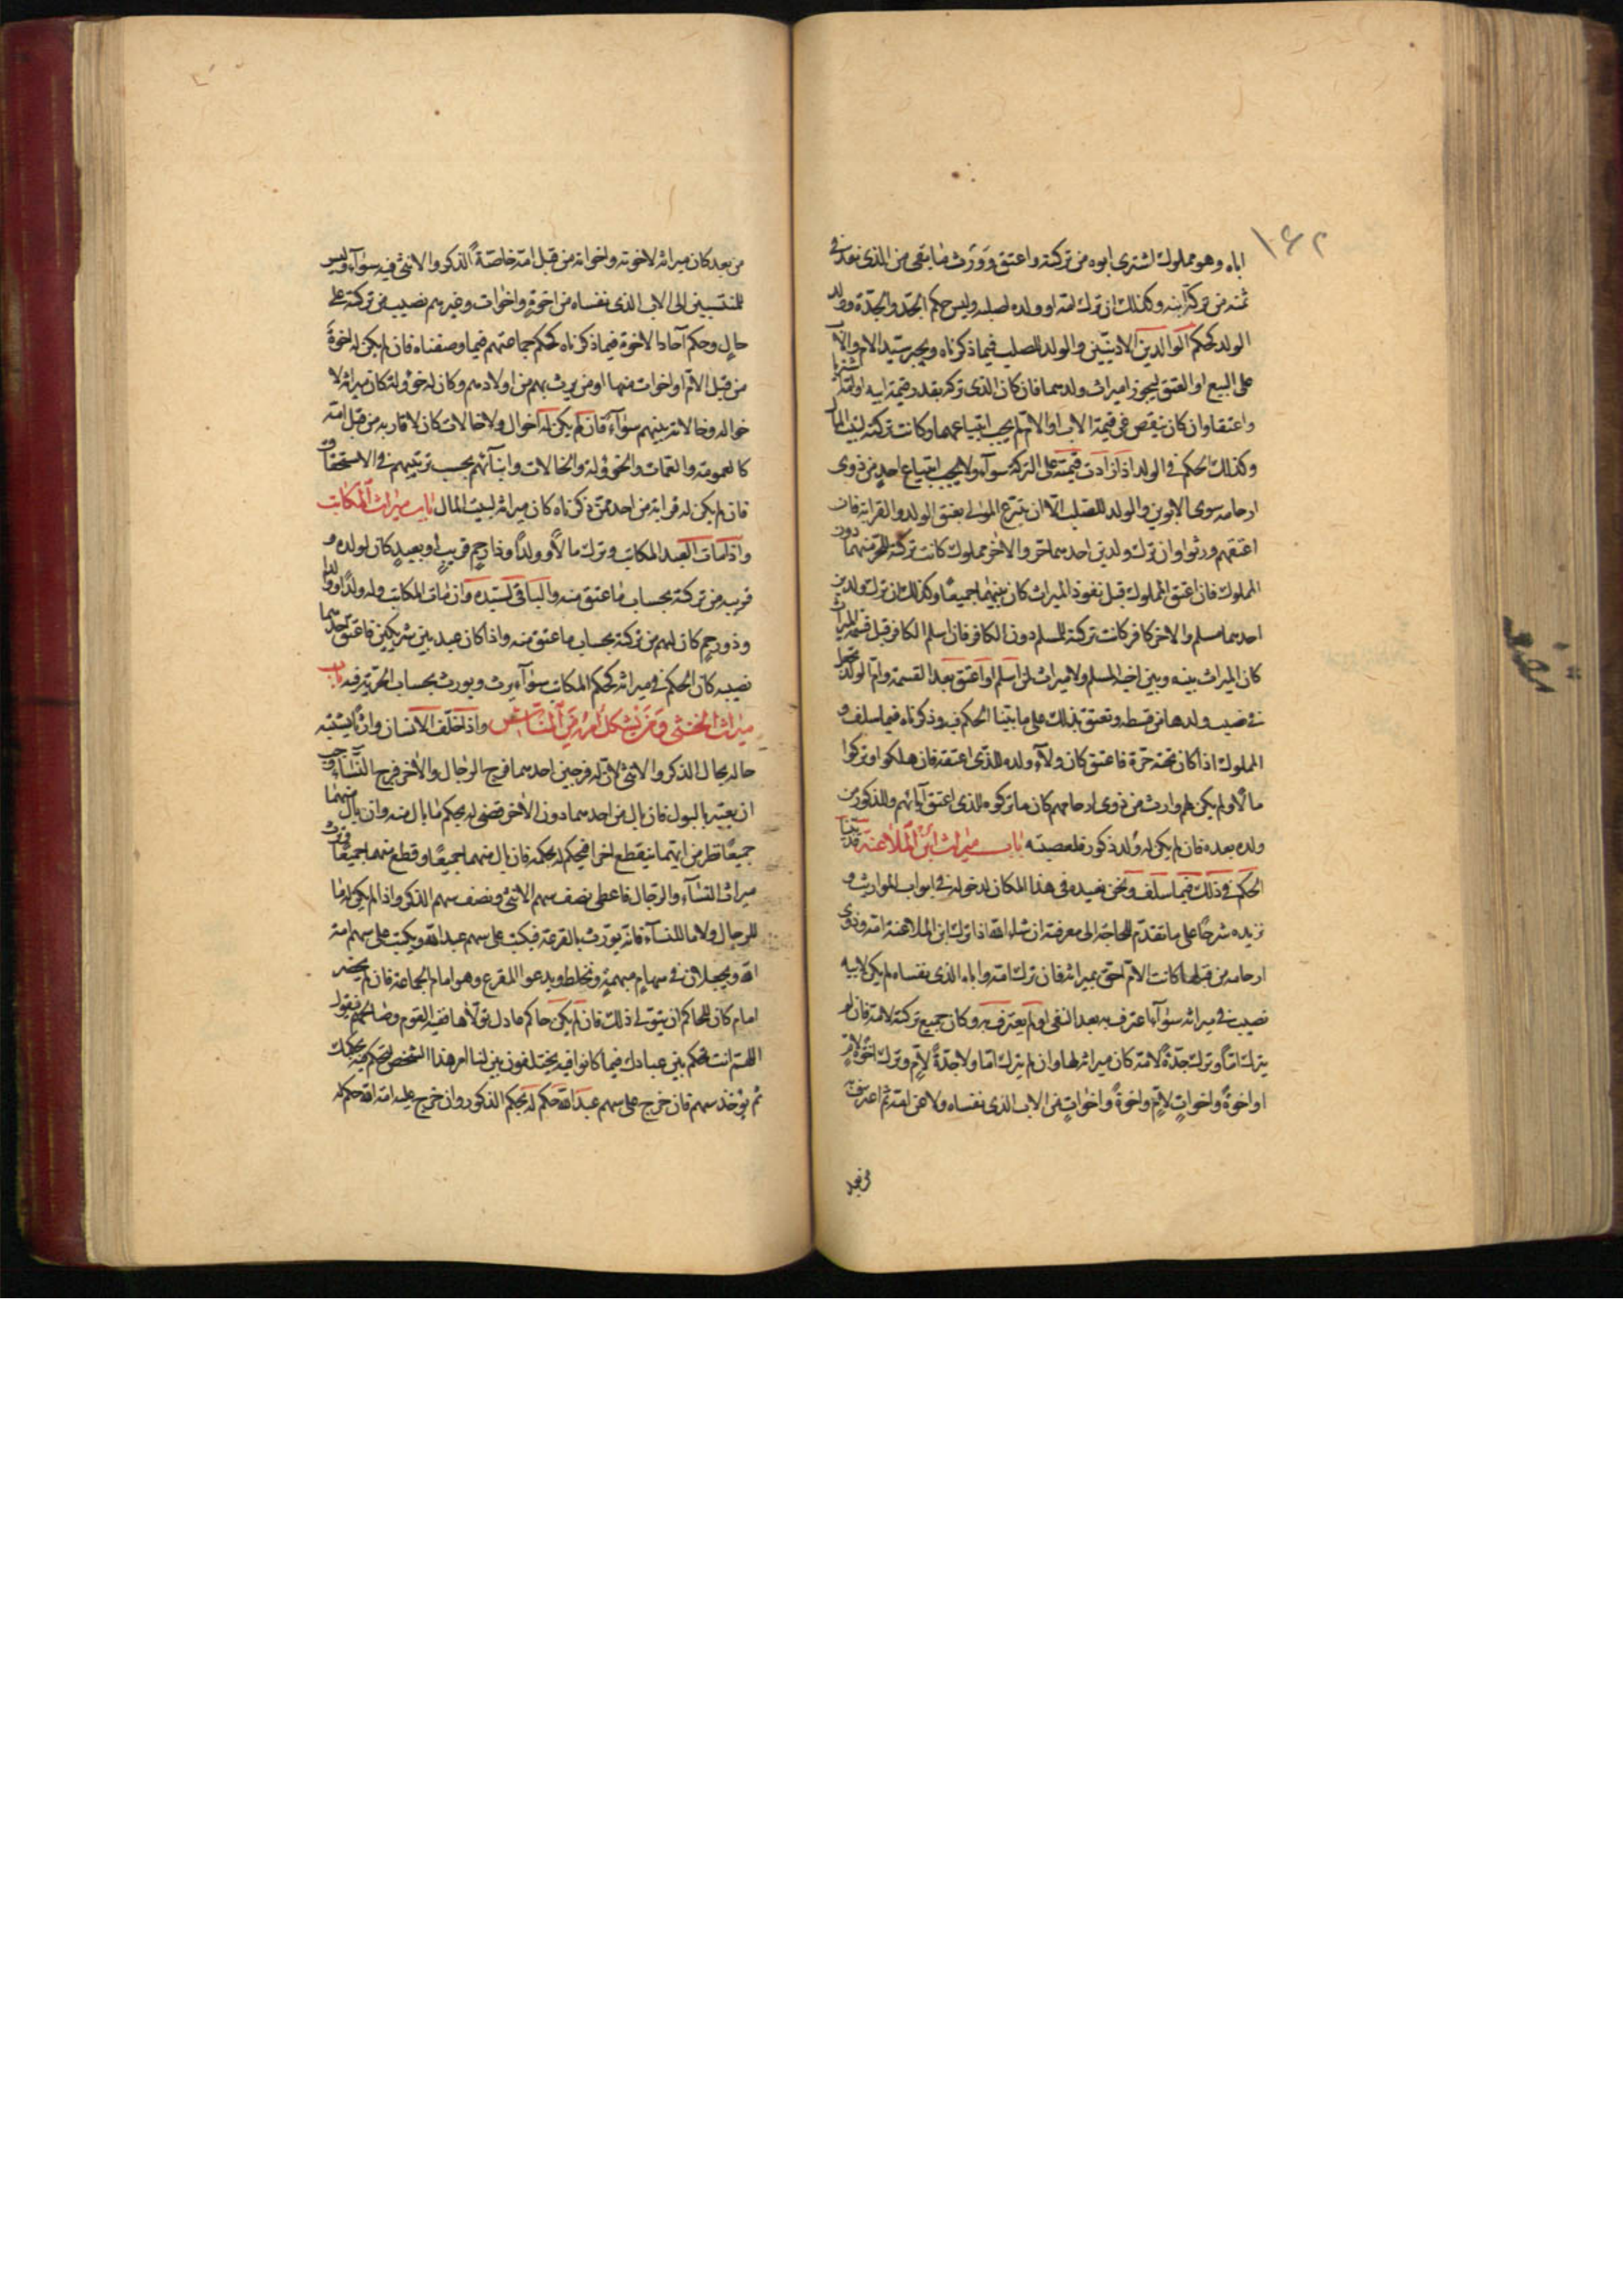 ١٠٤٢
اباه وهو مملوك اشترى ابوه من تركته واعتق وورث ما بقى من الذى نقد فى
ثمنه من تركة ابنه وكذلك ان ترك امه او ولده لصلبه وليس حكم الجد والجدة وولد
الولد كحكم الوالدين الادنيين والولد للصلب فيما ذكرناه ويجبر سيد الام والاب
على البيع او العتق ليجوزا ميراث ولدهما فان كان الذى تركه بقدر قيمة ابيه او امه اشتريا
واعتقا وان كان ينقص عن قيمة الاب او الام لم يجب ابتياعهما وكانت تركته لبيت المال
وكذلك الحكم فى الولد اذا زادت قيمته على التركة سوآء ولا يجب ابتياع احد من ذوى
ارحامه سوى الابوين والولد للصلب الا ان يتبرع الموالى بعتق الولد والقرابة فان
اعتقهم ورثوا وان ترك ولدين احدهما حر والاخر مملوك كانت تركته للحر منهما دون
المملوك فان اعتق المملوك قبل نفوذ الميراث كان بينهما جميعًا وكذلك ان ترك ولدين
احدهما مسلم والاخر كافر كانت تركته للمسلم دون الكافر فان اسلم الكافر قبل قسمة الميراث
كان الميراث بينه وبين اخيه المسلم ولا ميراث لمن اسلم او اعتق بعد القسمة وام الولد تجعل
فى نصيب ولدها من قسطه وتعتق بذلك على ما بينا الحكم فيه وذكرناه فيما سلف و
المملوك اذا كان تحته حرة فاعتق كان ولآء ولده للذى اعتقه فان هلكوا وتركوا
مالًا ولم يكن لهم وارث من ذوى ارحامهم كان ما تركوه للذى اعتق آبائهم وللذكور من
ولده بعده فان لم يكن له ولد ذكور فلعصبته باب ميراث ابن الملاعنة قد بينا
الحكم فى ذلك فيما سلف ونحن نعيده فى هذا المكان لدخوله فى ابواب المواريث و
نزيده شرحًا على ما تقدم للحاجة الى معرفته ان شاء الله اذا ترك ابن الملاعنة امه وذوى
ارحامه من قبلها كانت الام احق بميراثه فان ترك امه واباه الذى نفاه لم يكن لابيه
نصيب فى ميراثه سوآء اعترف به بعد النفى او لم يعترف به وكان جميع تركته لامه فان لم
يترك امًا وترك جدة لامه كان ميراثه لها وان لم يترك اما ولا جدةً لام وترك اخوة لام
او اخوةً واخواتٍ لام واخوةً واخواتٍ من الاب الذى نفاه ولاعن امه ثم اعترف به
من بعد
من بعد كان ميراثه لاخوته واخواته من قبل امه خاصة الذكر والانثى فيه سوآء وليس
للمنتسبين الى الاب الذى نفاه من اخوة واخوات وغيرهم نصيب من تركته على
حال وحكم آحاد الاخوة فيما ذكرناه كحكم جماعتهم فيما وصفناه فان لم يكن له اخوة
من قبل الام او اخوات منها او من يرث بهم من اولادهم وكان له خؤولة كان ميراثه لا
خواله وخالاته بينهم سوآء فان لم يكن له اخوال ولا خالات كان لاقاربه من قبل امه
كالعمومة والعمات والخؤولة والخالات وابنآئهم بحسب ترتيبهم فى الاستحقاق
فان لم يكن له قرابة من احد ممن ذكرناه كان ميراثه لبيت المال باب ميراث المكاتب
واذا مات العبد المكاتب وترك مالًا وولدًا وذا رحم قريب او بعيد كان لولده و
قريبه من تركته بحساب ما عتق منه والباقى لسيده وان مات المكاتب وله ولد او والد
وذو رحم كان لهم من تركته بحساب ما عتق منه واذا كان عبد بين شريكين فاعتق احدهما
نصيبه كان الحكم فى ميراثه كحكم المكاتب سوآء يرث ويورث بحساب الحرية فيه باب
ميراث الخنثى ومن يشكل امره من الناس واذا خلف الانسان وارثًا يشتبه
حاله بحال الذكر والانثى لان له فرجين احدهما فرج الرجال والاخر فرج النساء وجب
ان يعتبر بالبول فان بال من احدهما دون الاخر قضى له بحكم ما بال منه وان بال منهما
جميعًا نظر من ايهما ينقطع اخرا فيحكم له بحكمه فان بال منهما جميعًا وقطع منهما جميعًا ورث
ميراث النسآء والرجال فاعطى نصف سهم الانثى ونصف سهم الذكر واذا لم يكن له ما
للرجال ولا ما للنسآء فانه يورث بالقرعة فيكتب على سهم عبد الله ويكتب على سهم امة
الله ويجعلان فى سهام مبهمة وتخلط ويدعو المقرع وهو امام الجماعة فان لم يحضر
امام كان للحاكم ان يتولى ذلك فان لم يكن حاكم عادل تولاها فقيه القوم وصالحهم فيقول
اللهم انت تحكم بين عبادك فيما كانوا فيه يختلفون بين لنا امر هذا الشخص لنحكم فيه بحكمك
ثم يؤخذ سهم فان خرج على سهم عبد الله حكم له بحكم الذكور وان خرج عليه امة الله حكم له